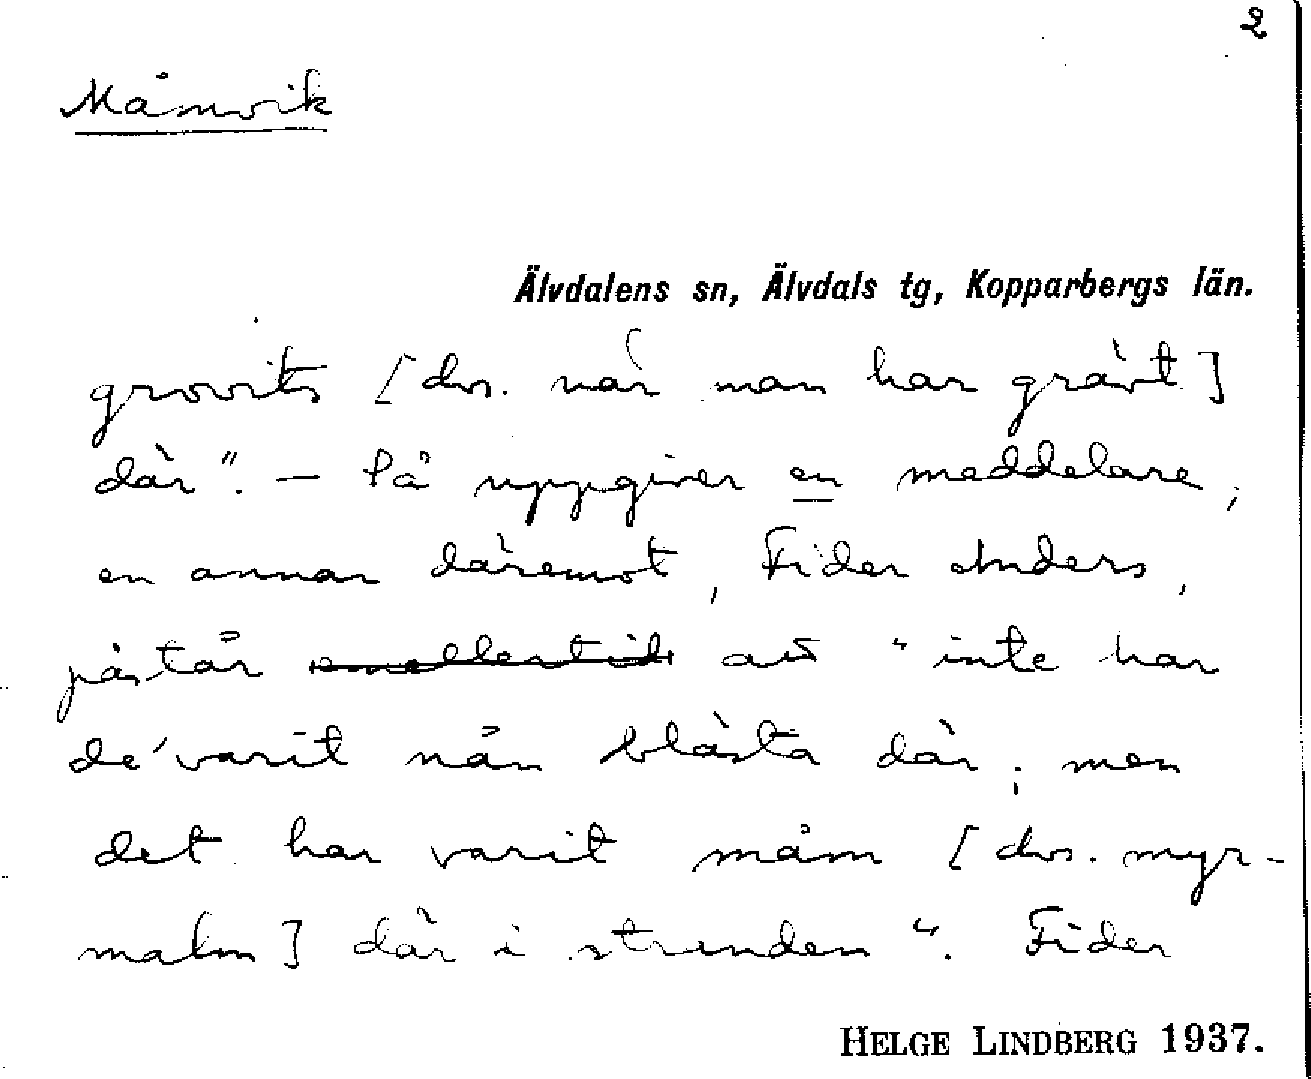 2
Måmvik
Älvdalens sn, Älvdals tg, Kopparbergs län.
grovits [dvs. når man har grävt]
där". — Så uppgiver en meddelare,
en annan däremot, Fider Anders,
påstår emellertid att "inte har
de' varit nån blästa där; men
det har varit måm [dvs. myr-
malm] där i stranden". Fider
HELGE LINDBERG 1937.